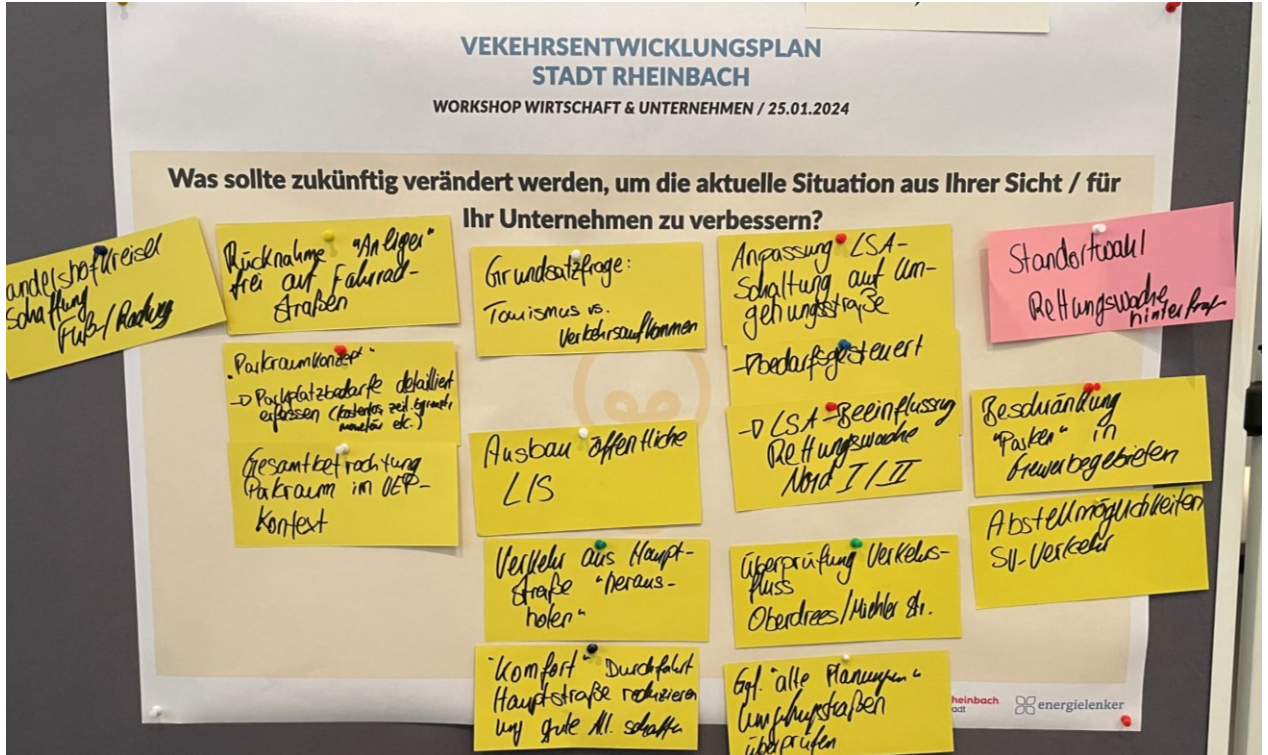 VEKEHRSENTWICKLUNGSPLAN
STADT RHEINBACH
WORKSHOP WIRTSCHAFT & UNTERNEHMEN / 25.01.2024
Was sollte zukünftig verändert werden, um die aktuelle Situation aus Ihrer Sicht / für
Ihr Unternehmen zu verbessern?
andelshofkreisel
Schaffung
Fuß-/
Rücknahme "Anliger"
frei auf Fahrrad-
straßen
"Parkraumkonzept"
→ Parkplatzbedarfe detailliert
erfassen (kostenlos, zeil.
monetär etc.)
Gesamtbetrachtung
Parkraum im VEP-
Kontext
Grundsatzfrage:
Tourismus vs.
Verkehrsaufkommen
Ausbau öffentliche
LIS
Verkehr aus Haupt-
straße "heraus-
holen"
"Komfort" Durchfahrt
Hauptstraße reduzieren
und gute Al. schaffen
Anpassung LSA-
Schaltung auf Um-
gehungsstraße
→ bedarfsgesteuert
→ LSA-Beeinflussung
Rettungswache
Nord I/II
Überprüfung Verkehrs-
fluss
Oberdrees/
Ggf. "alte Planungen"
Umgehungsstraßen
überprüfen
Standortwahl
Rettungswache
hinterfragen
Beschränkung
"Parken" in
Gewerbegebieten
Abstellmöglichkeiten
SV-Verkehr
heinbach
adt
energielenker